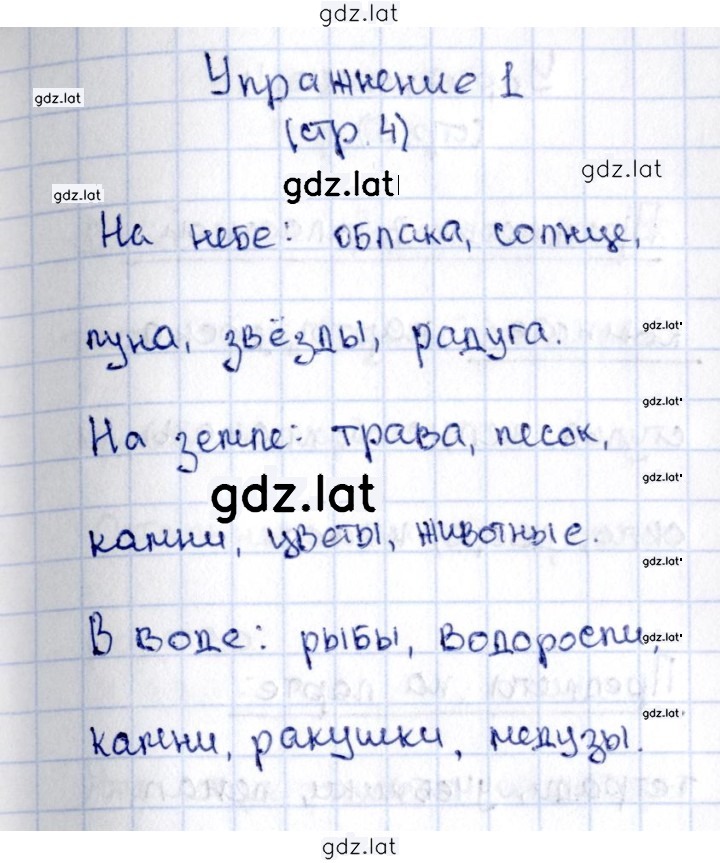 gdz.lat
Упражнение 1
gdz.lat
(стр. 4)
gdz.lat
gdz.lat
gdz.lat
На небе: облака, солнце,
луна, звёзды, радуга.
gdz.lat
gdz.lat
На земле: трава, песок,
gdz.lat
gdz.lat
камни, цветы, животные.
gdz.lat
В воде: рыбы, водоросли,
gdz.lat
gdz.lat
камни, ракушки, медузы.
gdz.lat